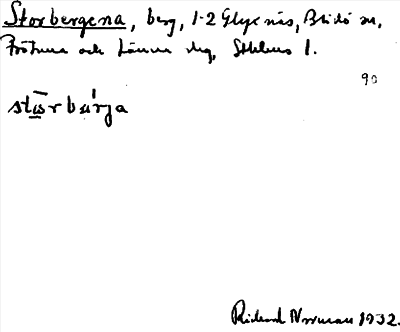 Storbergena, berg, 1-2 Glyxnäs, Blidö sn,
Frötuna och Länna skg, Sthlms l.
90
stω̄rbárja
Rickard Norman 1932.